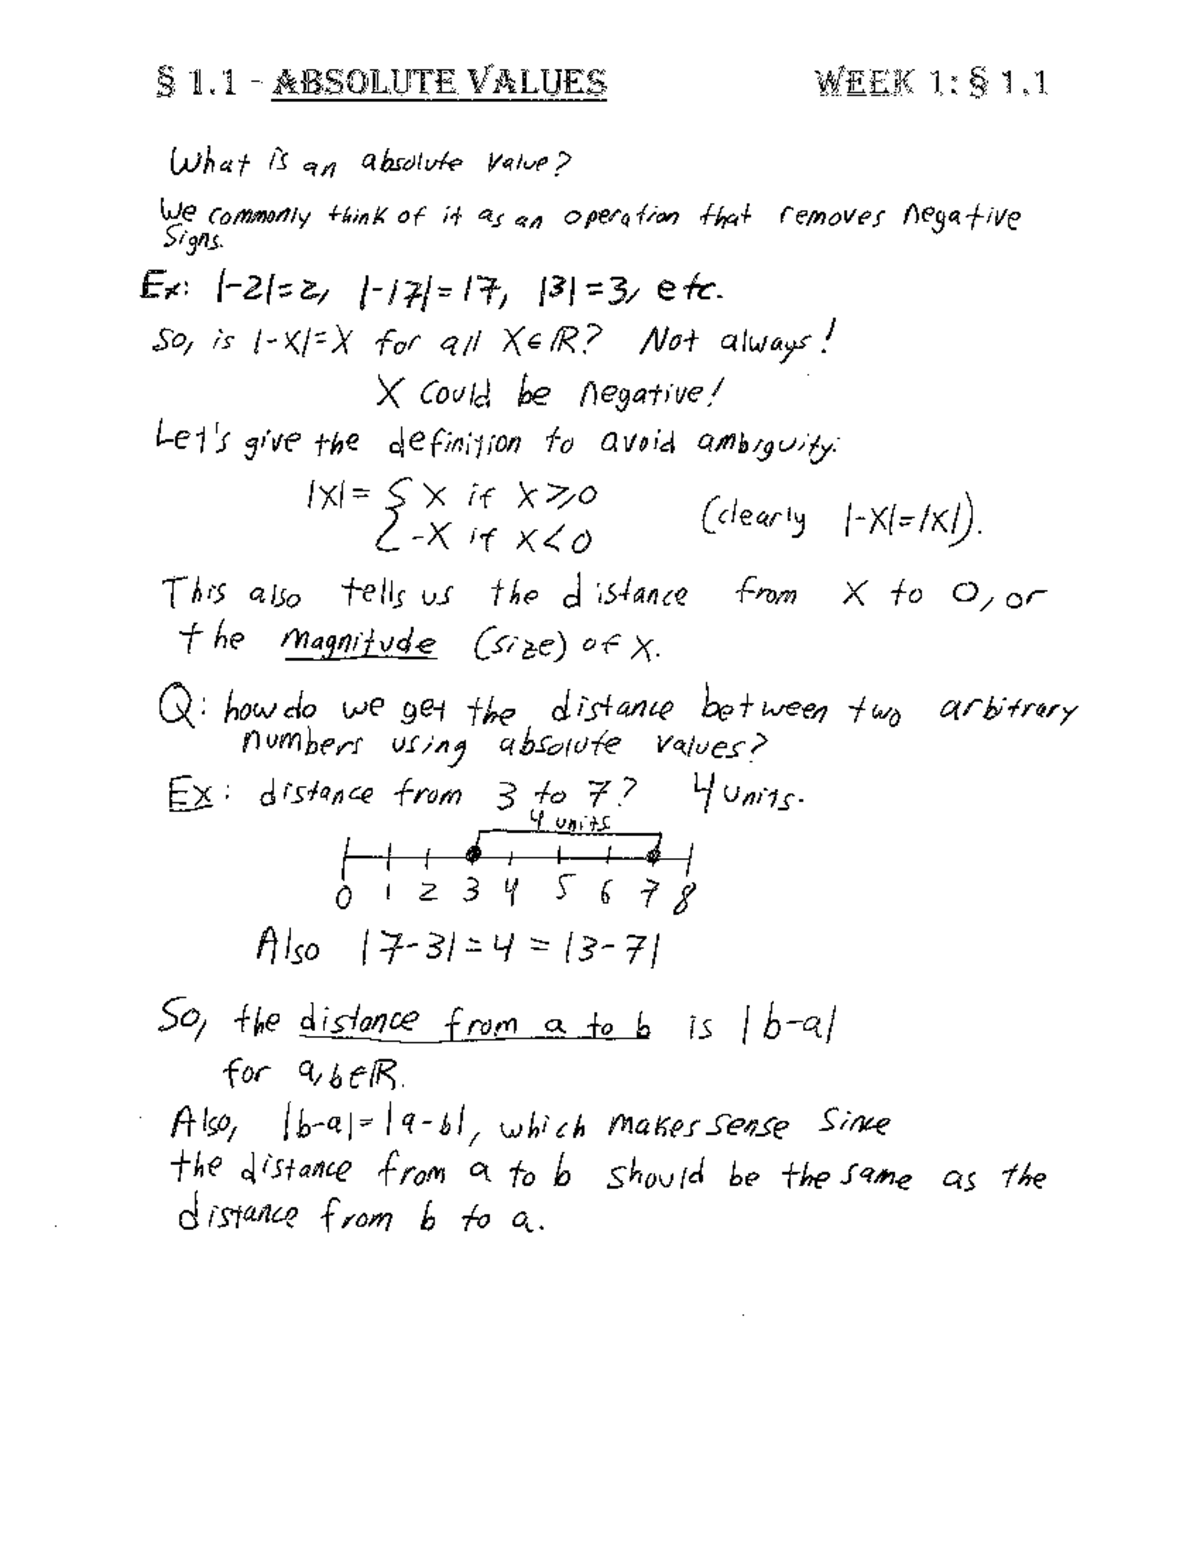 § 1.1 - ABSOLUTE VALUES WEEK 1: § 1.1
What is an absolute value?
We commonly think of it as an operation that removes negative
signs.
Ex: |-2|=2, |-17|=17, |3|=3, etc.
So, is |-x|=x for all x∈ℝ? Not always!
x could be negative!
Let's give the definition to avoid ambiguity:
|x|= { x if x≥0
-x if x<0 (clearly |-x|=|x|).
This also tells us the distance from x to 0, or
the magnitude (size) of x.
Q: how do we get the distance between two arbitrary
numbers using absolute values?
Ex: distance from 3 to 7? 4 units.
4 units
0 1 2 3 4 5 6 7 8
Also |7-3|=4=|3-7|
So, the distance from a to b is |b-a|
for a,b∈ℝ.
Also, |b-a|=|a-b|, which makes sense since
the distance from a to b should be the same as the
distance from b to a.